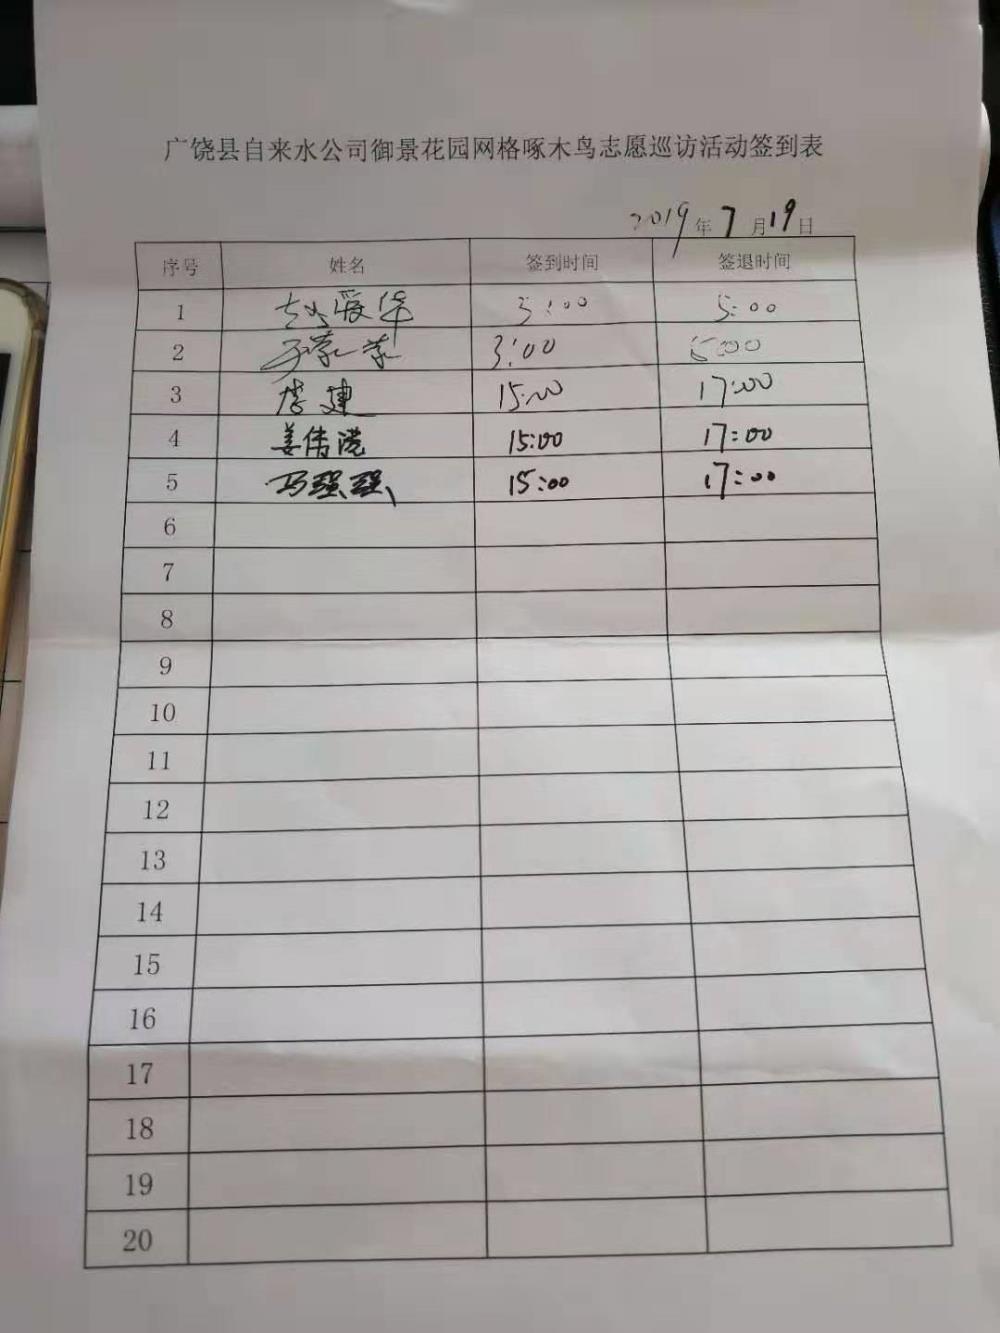 广饶县自来水公司御景花园网格啄木鸟志愿巡访活动签到表
2019年7月19日
序号 姓名 签到时间 签退时间
1 赵爱华 3:00 5:00
2 3:00 5:00
3 李建 15:00 17:00
4 姜伟滨 15:00 17:00
5 马强强 15:00 17:00
6
7
8
9
10
11
12
13
14
15
16
17
18
19
20